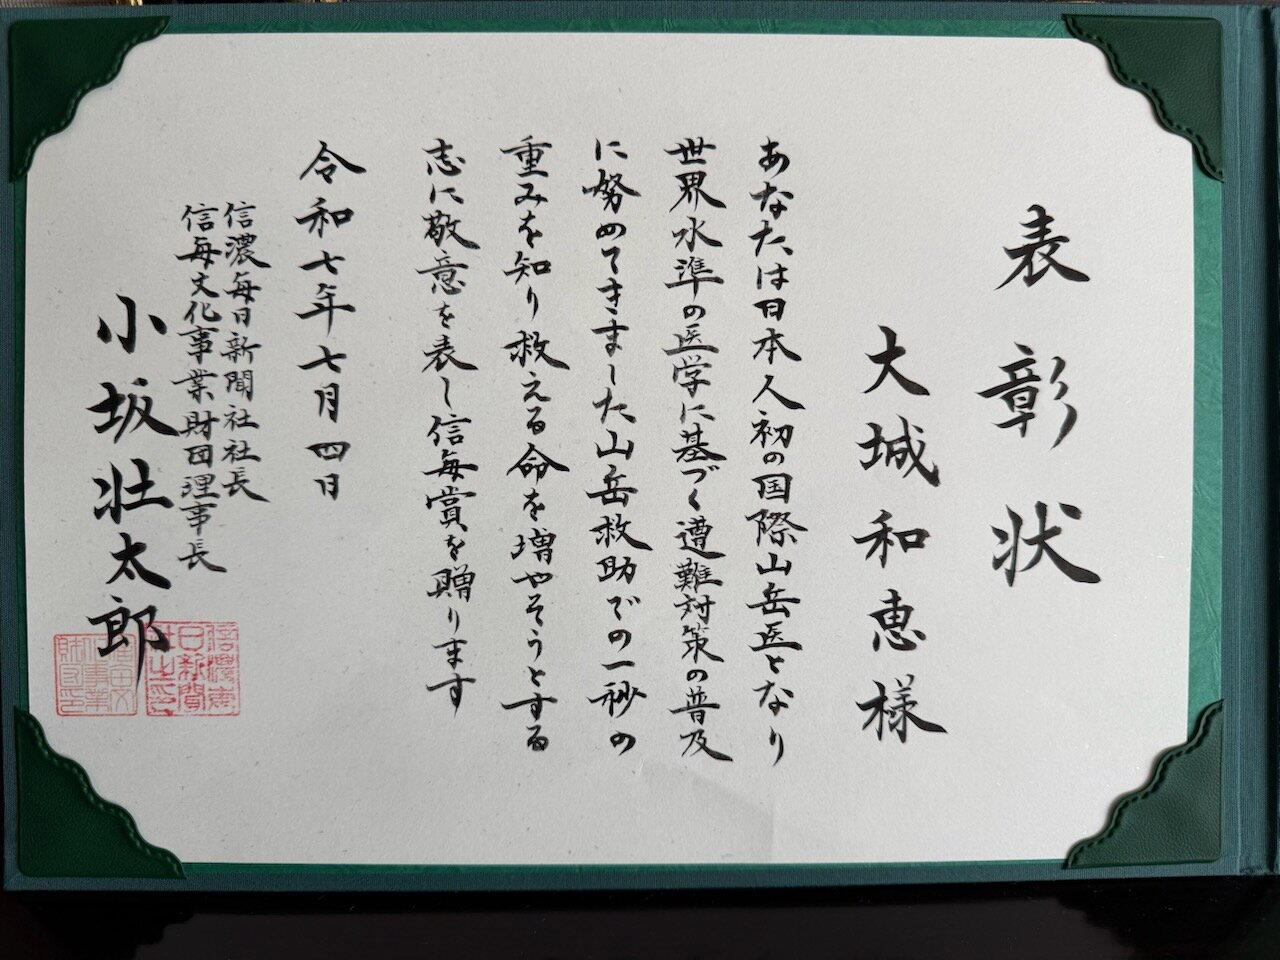 表彰状
大城和恵様
あなたは日本人初の国際山岳医となり
世界水準の医学に基づく遭難対策の普及
に努めてきました山岳救助での一秒の
重みを知り救える命を増やそうとする
志に敬意を表し信毎賞を贈ります
令和七年七月四日
信濃毎日新聞社社長
信毎文化事業財団理事長
小坂壮太郎